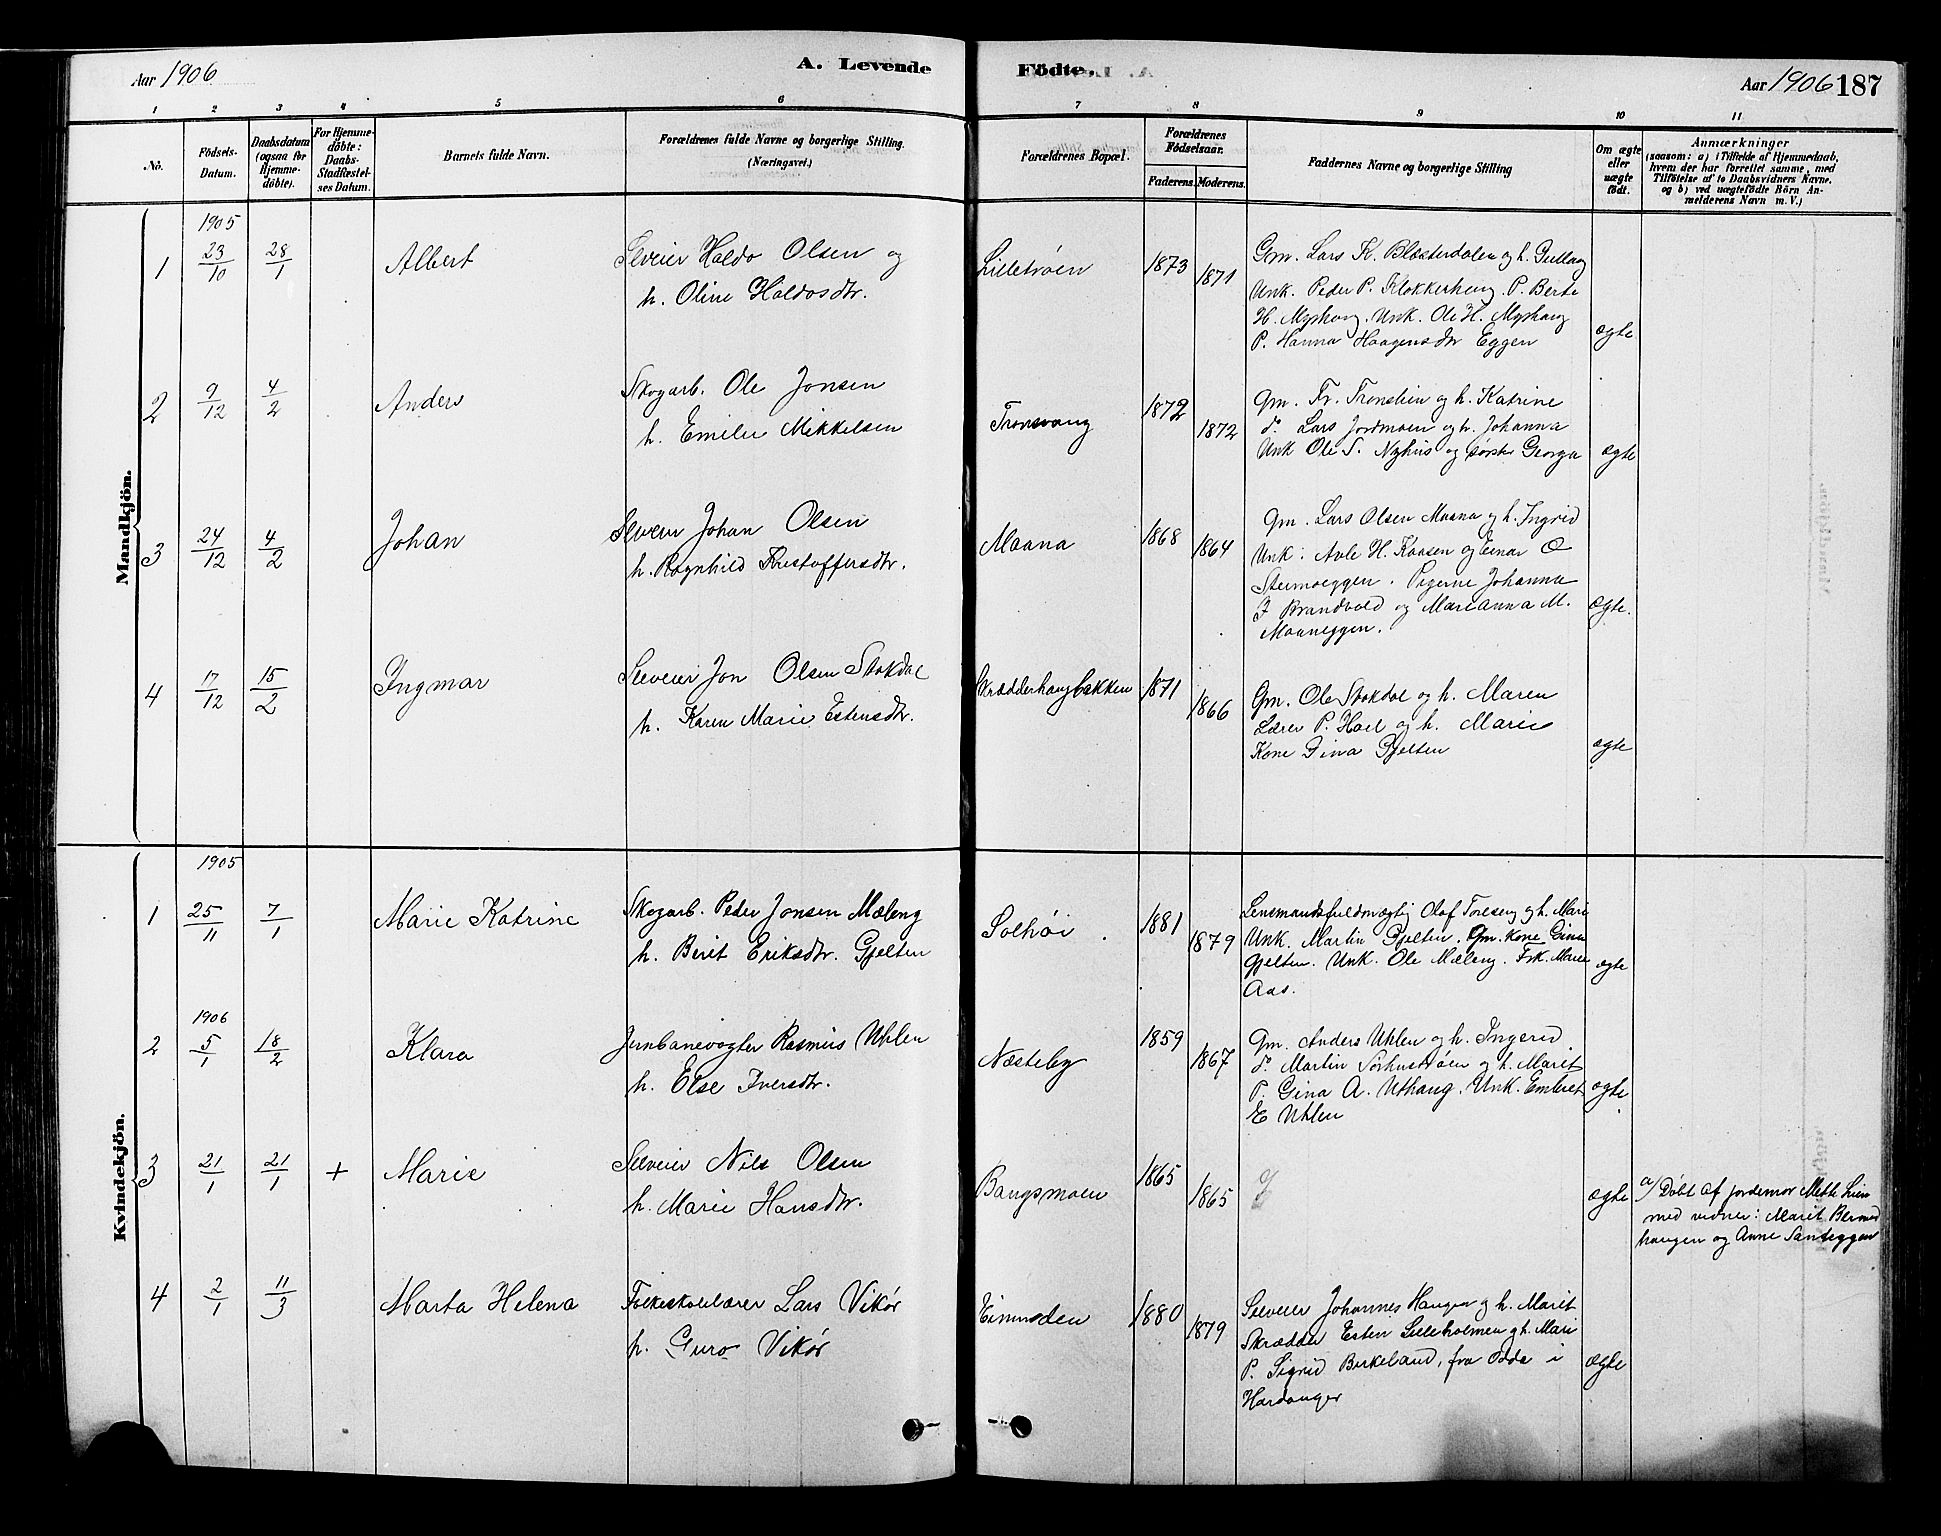 Aar 1906
A. Levende
Födte.
Aar 1906 187
1 2 3 4 5 6 7 8 9 10 11
No.
Födsels-
Datum.
Daabsdatum
(ogsaa for
Hjemme-
döbte).
For Hjemme-
döbte:
Daabs-
Stadfæstel-
ses Datum.
Barnets fulde Navn.
Forældrenes fulde Navne og borgerlige Stilling.
(Næringsvei.)
Forældrenes Bopæl.
Forældrenes
Födselsaar.
Faderens. Moderens.
Faddernes Navne og borgerlige Stilling
Om ægte
eller
uægte
födt.
Anmærkninger
(saasom: a) i Tilfælde af Hjemmedaab,
hvem der har forrettet samme, med
Tilföielse af to Daabsvidners Navne,
og b) ved uægtefödte Börn An-
melderens Navn m. V.)
Mandkjön.
1905
1 23/10 28/1 Albert
Selveier Haldo Olsen og
h. Oline Haldosdtr.
Lilletrøen 1873 1871
Gm. Lars K. Blæsterdalen og h. Gulløg
Unk. Peder P. Klokkerhaug. P. Berte
H. Myrhaug. Unk. Ole H. Myrhaug
P. Hanna Haagensdtr Eggen
ægte
2 9/12 4/2 Anders
Skogarb. Ole Jonsen
h. Emilie Mikkelsen
Tronsvang 1872 1872
Gm. Fr. Tronslien og h. Katrine
do. Lars Jordmoen og h. Johanna
Unk Ole S. Nyhus og søster Georga
ægte
3 24/12 4/2 Johan
Selveier Johan Olsen
h. Ragnhild Kristoffersdtr.
Maana 1868 1864
Gm. Lars Olsen Maana og h. Ingrid
Unk: Avle H. Kaasen og Einar O
Steimoeggen. Pigerne Johanna
J Brandvold og Marianna M.
Maaneggen.
ægte.
4 17/12 15/2 Ingmar
Selveier Jon Olsen Stokdal
h. Karen Marie Estensdtr.
Skrædderhaugbakken 1871 1866
Gm. Ole Stokdal og h. Maren
Lærer P. Hoel og h. Marie
Kone Gina Gjelten
ægte
Kvindekjön.
1905
1 25/11 7/1 Marie Katrine
Skogarb. Peder Jonsen Mæleng
h. Berit Eriksdtr. Gjelten
Solhøi 1881 1879
Lensmandsfuldmægtig Olof Toresen og h. Mari
Unk. Martin Gjelten. Gm. kone Gina
Gjelten. Unk. Ole Mæleng. Frk. Marie
Aas.
ægte
1906
2 5/1 18/2 Klara
Jernbanevogter Rasmus Uhlen
h. Else Iversdtr.
Næsteby 1859 1867
Gm. Anders Uhlen og h. Ingerid
do. Martin Sørhustrøen og h. Marit
P. Gina A. Uthaug. Unk. Embret
E Uhlen
ægte
3 21/1 21/1 + Marie
Selveier Nils Olsen
h. Marie Hansdtr.
Bangsmoen 1865 1865
ægte
a/ Døbt af jordemor Mette Lien
med vidner: Marit
haugen og Anne Santeggen
4 2/1 11/3 Marta Helena
Folkeskolelærer Lars Vikør
h. Guro Vikør
Einunden 1880 1879
Selveier Johannes Haugen og h. Marit
Skrædder Esten Lilleholmen og h. Mari
P. Sigrid Birkeland, fra Odda i
Hardanger
ægte